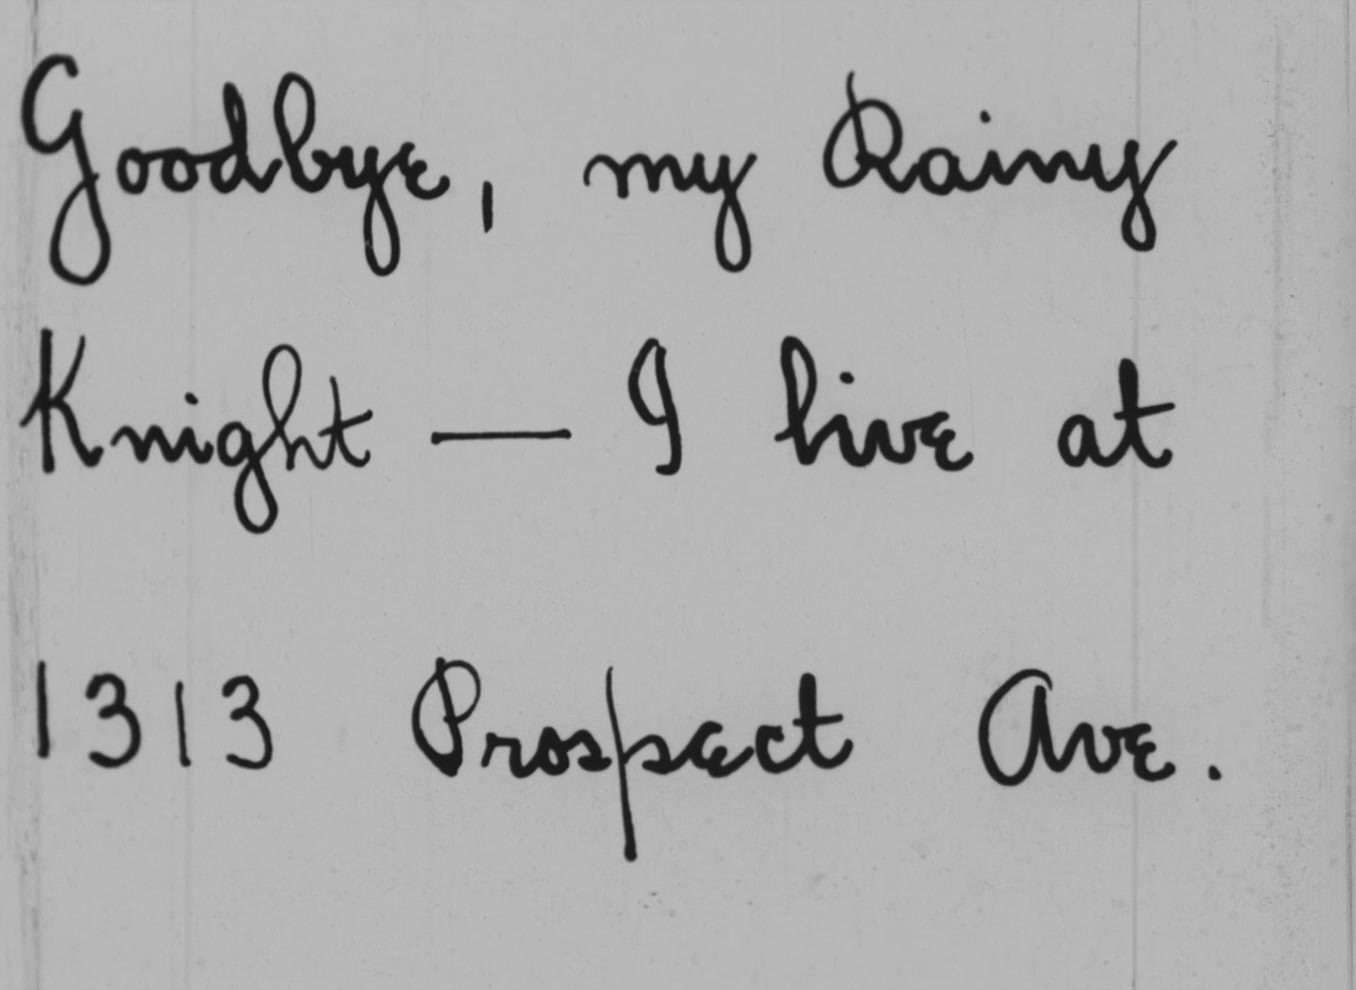 Goodbye, my Rainy
Knight — I live at
1313 Prospect Ave.